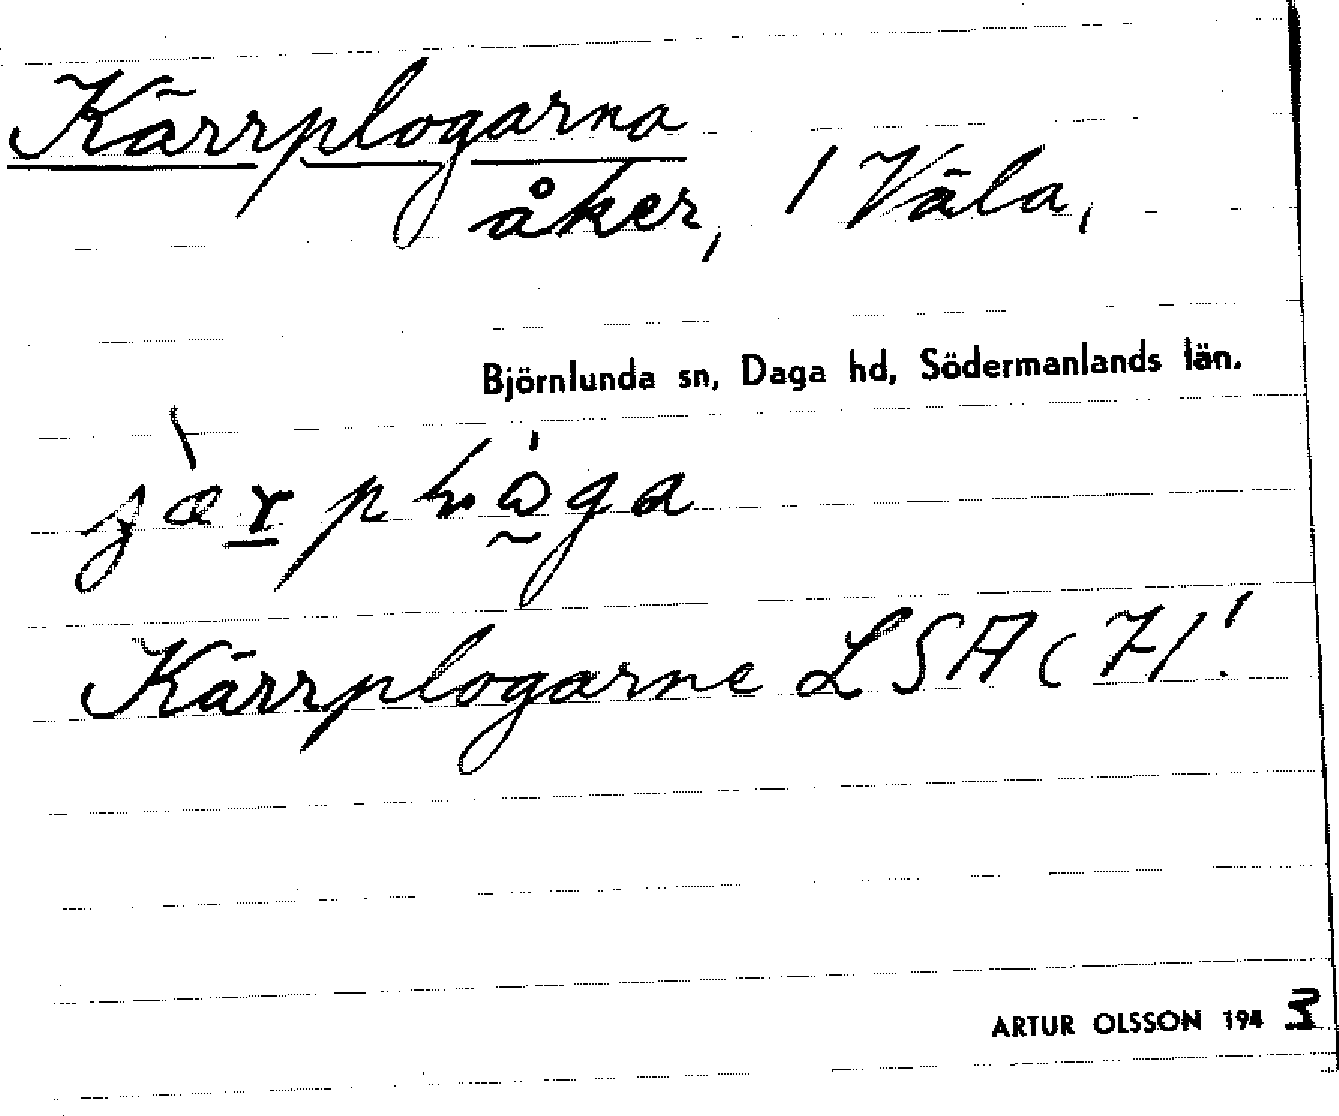 Kärrplogarna
åker, 1 Väla,
Björnlunda sn, Daga hd, Södermanlands län.
Kärrplogarne LSA C 71!
ARTUR OLSSON 1943